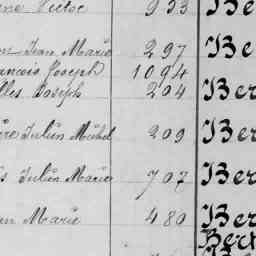 Victor 933 Be
Jean Marie 297 Be
ancois Joseph 1094
lles Joseph 204 Ber
re Julien Michel 209 Ber
s Julien Marie 707 Ber
an Marie 480 Ber
Bert